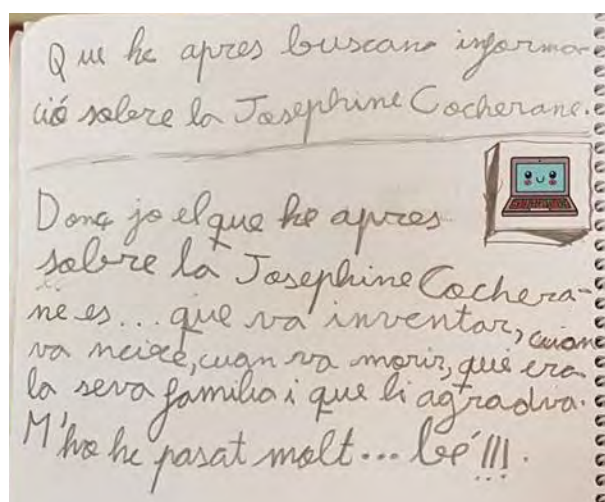 Que he apres buscana informa-
ció sobre la Josephine Cocherane.
Donç jo el que he apres
sobre la Josephine Cochera-
ne es... que va inventar, cuan
va neixe, cuan va morir, qué era
la seva familia i que li agradva.
M'ho he pasat molt... bé!!!.